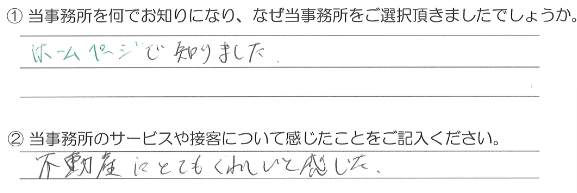 ① 当事務所を何でお知りになり、なぜ当事務所をご選択頂きましたでしょうか。
ホームページで知りました.
② 当事務所のサービスや接客について感じたことをご記入ください。
不動産にとてもくわしいと感じた.